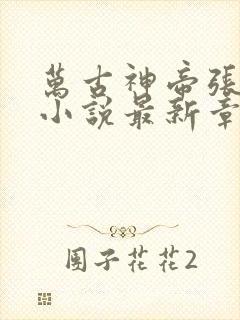 萬古神帝張
小說最新章
團子花花2